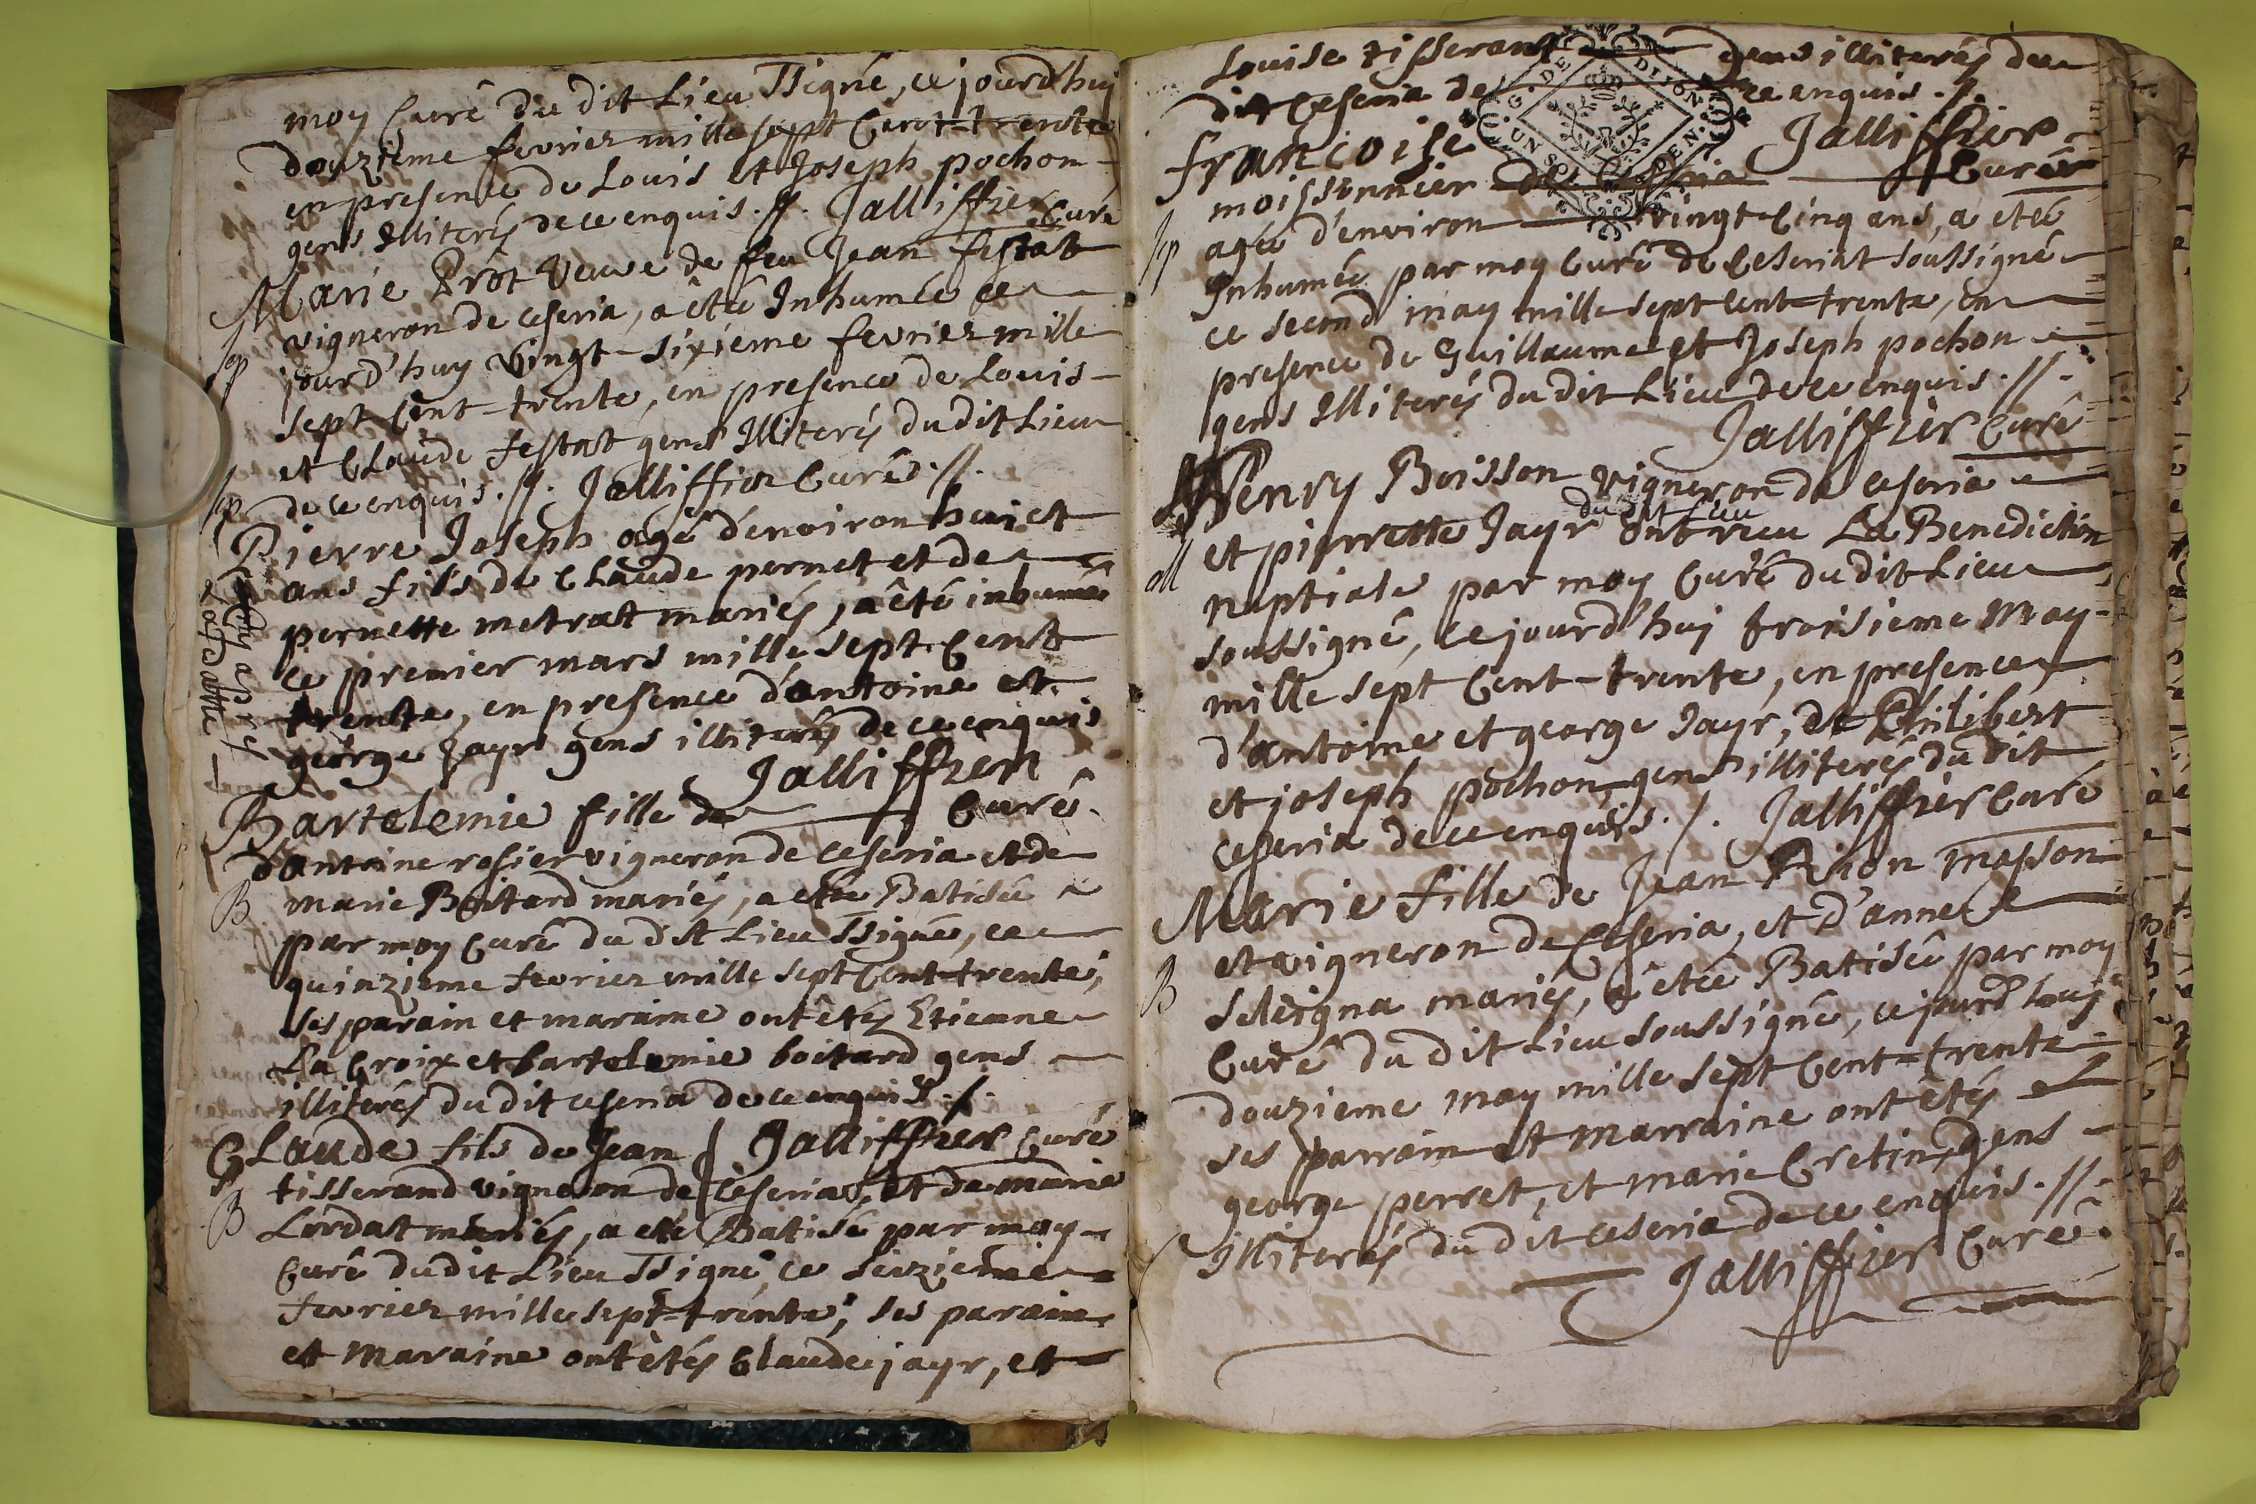 moy Curé du dit Lieu ssigné, ce jourd'huy
douzieme fevrier mille sept Cent-trente
en presence de Louis et Joseph pochon
gens Illiterés de ce enquis. //. Jalliffier Curé
Marie Prot Veuve de feu Jean festat
vigneron de ceseria, a êtée Inhumée ce
jourd'huy Vingt-sixieme fevrier mille
sept Cent-trente, en presence de Louis
et Claude festat gens Illiterés du dit Lieu
de ce enquis. //. Jalliffier Curé. //.
Pierre Joseph agé d'environ huict
ans fils de Claude pernet et de
pernette metrat mariés, a êté inhumé
ce premier mars mille sept Cent
trente, en presence d'antoine et
george Jayr gens illiterés de ce enquis
Jalliffier
Curé
Bartelemie fille de
d'antoine rosier vigneron de ceseria et de
marie Boitard mariés, a etée Batisée
par moy Curé du dit Lieu ssigné, ce
quinzieme fevrier mille sept Cent-trente,
ses parain et maraine ont êtés Etienne
La Croix et bartelemie boitard gens
illiterés du dit ceseria de ce enquis. /.
Jalliffier Curé
Claude fils de Jean
tisserand vigneron de Ceseria, et de marie
Lordat mariés, a eté Batisé par moy
Curé du dit Lieu ssigné, ce seizieme
fevrier mille sept-trente, ses parain
et maraine ont êtés Claude jayr, et
cy apres
La datte
Louise tisserant gens illiterés du
dit Ceseria de ce enquis. /.
Jalliffier
Curé
G. DE DIJON
UN SOL
DEN.
francoise
moissonnier de Ceseria
agée d'environ vingt-Cinq ans, a etée
Inhumée par moy Curé de Ceseriat soussigné
ce second may mille sept cent-trente, en
presence de Guillaume et Joseph pochon
gens Illiterés du dit Lieu de ce enquis. //.
Jalliffier Curé
Henry Buisson vigneron de ceseria
du dit lieu
et pierrette Jayr ont reçu La Benediction
nuptiale par moy Curé du dit Lieu
soussigné, ce jourd'huy troisieme may
mille sept Cent-trente, en presence
d'antoine et george Jayr, de Philibert
et joseph pochon, gens illiterés du dit
ceseria de ce enquis. /. Jalliffier Curé
Marie fille de Jean Rion masson
et vigneron de Ceseria, et d'anne
Seleigna mariés, a êtée Batisée par moy
Curé du dit Lieu soussigné, ce jourd'huy
douzieme may mille sept Cent-trente
ses parrain et marraine ont êtés
george perret, et marie Cretin, gens
Illiterés du dit ceseria de ce enquis. //.
Jalliffier Curé